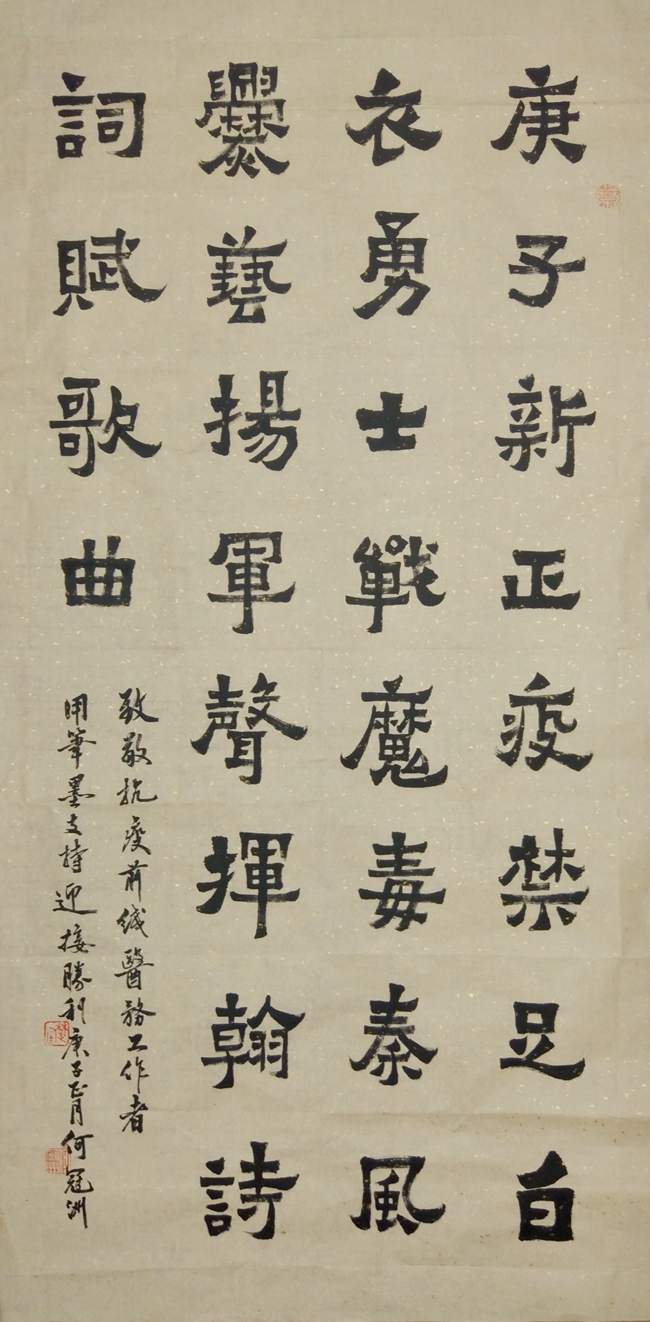 庚子新正疫禁足白
衣勇士戰魔毒秦風
爨藝揚軍聲揮翰詩
詞賦歌曲
致敬抗疫前线醫務工作者
用筆墨支持迎接勝利庚子正月何冠洲